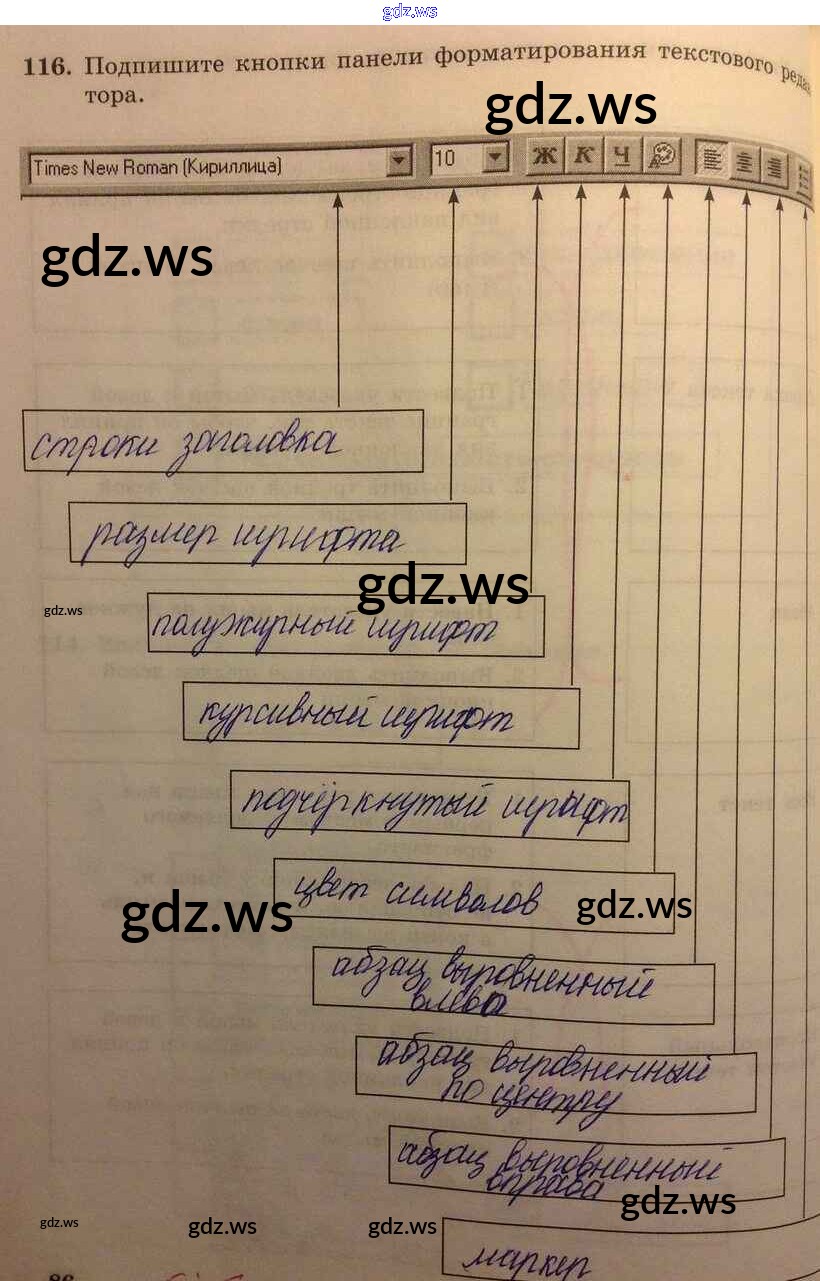 gdz.ws
116. Подпишите кнопки панели форматирования текстового редак
тора.
gdz.ws
Times New Roman (Кириллица) 10 Ж К Ч
gdz.ws
строки заголовка
размер шрифта
gdz.ws
gdz.ws
полужирный шрифт
курсивный шрифт
подчёркнутый шрифт
цвет символов
gdz.ws
gdz.ws
абзац выровненный
влево
абзац выровненный
по центру
абзац выровненный
вправа
gdz.ws
gdz.ws
gdz.ws
gdz.ws
маркер
86